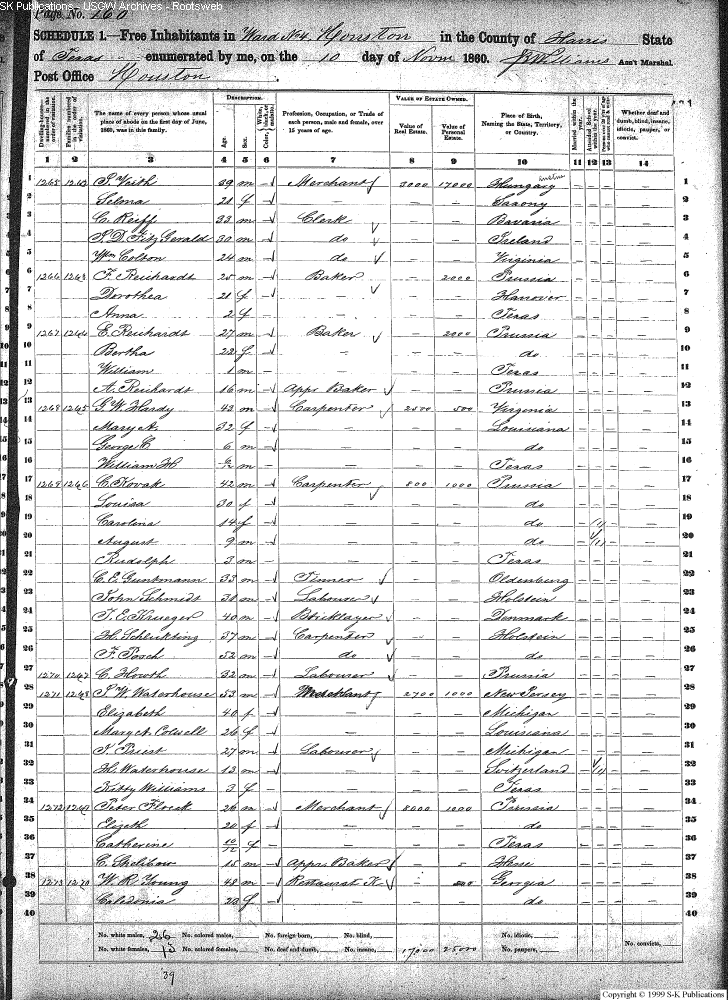 SK Publications - USGW Archives - Rootsweb
Page No. 160
SCHEDULE 1.—Free Inhabitants in Ward No 4, Houston in the County of Harris State
of Texas enumerated by me, on the 10 day of Novm 1860. Ass't Marshal
Post Office Houston
DESCRIPTION. VALUE OF ESTATE OWNED.
Dwelling-houses—numbered in the order of visitation.
Families numbered in the order of visitation.
The name of every person whose usual place of abode on the first day of June, 1860, was in this family.
Age Sex Color
Profession, Occupation, or Trade of each person, male and female, over 15 years of age.
Value of Real Estate. Value of Personal Estate.
Place of Birth, Naming the State, Territory, or Country.
Married within the year.
Whether deaf and dumb, blind, insane, idiotic, pauper, or convict.
1 2 3 4 5 6 7 8 9 10 11 12 13 14
1 1265 1262 39 m Merchant 3000 17000 Hungary 1
2 Selma 21 f — — — Saxony 2
3 C. Reiff 33 m Clerk — — Bavaria 3
4 Fitz Gerald 30 m do — — Ireland 4
5 Wm Colton 24 m do — — Virginia 5
6 1266 1263 F. Reichardt 25 m Baker — 2000 Prussia 6
7 Dorothea 21 f — — — Hanover 7
8 Anna 2 f — — — Texas 8
9 1267 1264 E. Reichardt 27 m Baker — 2000 Prussia 9
10 Bertha 22 f — — — do 10
11 William 1 m — — — Texas 11
12 A. Reichardt 16 m Appr. Baker — — Prussia 12
13 1268 1265 G. W. Hardy 43 m Carpenter 2500 500 Virginia 13
14 Mary A. 32 f — — — Louisiana 14
15 George C. 6 m — — — do 15
16 William H m — — — Texas 16
17 1269 1266 C. Novak 42 m Carpenter 800 1000 Prussia 17
18 Louisa 30 f — — — do 18
19 Carolina 14 f — — — do 19
20 August 9 m — — — do 20
21 Rudolph 3 m — — — Texas 21
22 C. E. Guntmann 33 m Tinner — — Oldenburg 22
23 John Schmidt 38 m Labourer — — Holstein 23
24 Krueger 40 m Bricklayer — — Denmark 24
25 H. Schlickting 37 m Carpenter — — Holstein 25
26 F. Posch 52 m do — — do 26
27 1270 1267 C. Howth 32 m Labourer — — Prussia 27
28 1271 1268 W. Waterhouse 53 m Merchant 2700 1000 New Jersey 28
29 Elizabeth 40 f — — — Michigan 29
30 Mary A. Colwell 26 f — — — Louisiana 30
31 Priest 27 m Labourer — — Michigan 31
32 H. Waterhouse 13 m — — — Switzerland 32
33 Kitty Williams 3 f — — — Texas 33
34 1272 1269 Peter Floeck 26 m Merchant 8000 1000 Prussia 34
35 Elizeth 20 f — — — do 35
36 Catherine 10/12 f — — — Texas 36
37 C. 15 m Appr. Baker — Hesse 37
38 1273 1270 W. R. Young 48 m Restaurat K — 500 Georgia 38
39 Caledonia 23 f — — — do 39
40 40
No. white males, 26 No. colored males, No. foreign born, No. blind, No. idiotic,
No. white females, 13 No. colored females, No. deaf and dumb, No. insane, 17000 25000 No. paupers, No. convicts,
39
Copyright © 1999 S-K Publications